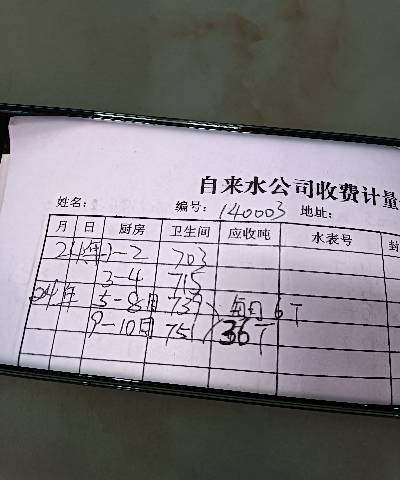 自来水公司收费计量
姓名: 编号: 140003 地址:
月 日 厨房 卫生间 应收吨 水表号 封
1-2 703
3-4 715
24年 5-8月 739 每月6T
9-10月 751 36T